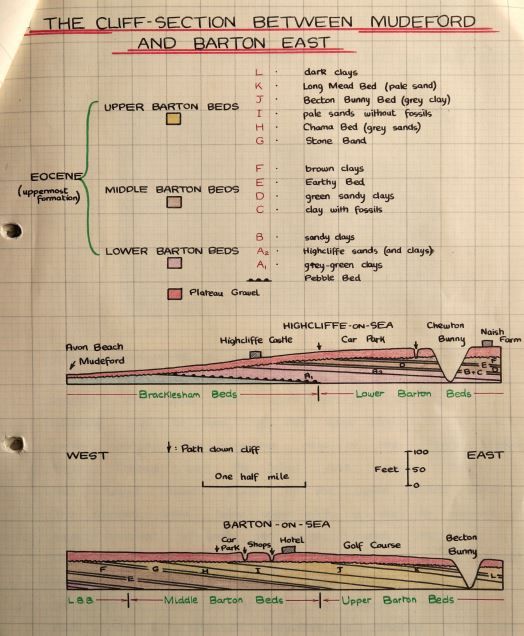 THE CLIFF-SECTION BETWEEN MUDEFORD
AND BARTON EAST
L · dark clays
K · Long Mead Bed (pale sand)
UPPER BARTON BEDS J · Becton Bunny Bed (grey clay)
I · pale sands without fossils
H · Chama Bed (grey sands)
G · Stone Band
EOCENE
(uppermost
formation)
F · brown clays
MIDDLE BARTON BEDS E · Earthy Bed
D · green sandy clays
C · clay with fossils
B · sandy clays
LOWER BARTON BEDS A₂ · Highcliffe sands (and clays)
A₁ · grey-green clays
Pebble Bed
Plateau Gravel
HIGHCLIFFE-ON-SEA
Highcliffe Castle
Car
Park
Chewton
Bunny
Naish
Farm
Avon Beach
Mudeford
A₁ A₂ D B+C E F D
Bracklesham Beds Lower Barton Beds
WEST
: Path down cliff
One half mile
Feet
100
50
0
EAST
BARTON-ON-SEA
Car
Park
Shops
Hotel
Golf Course
Becton
Bunny
F E G H I J K L
L B B Middle Barton Beds Upper Barton Beds